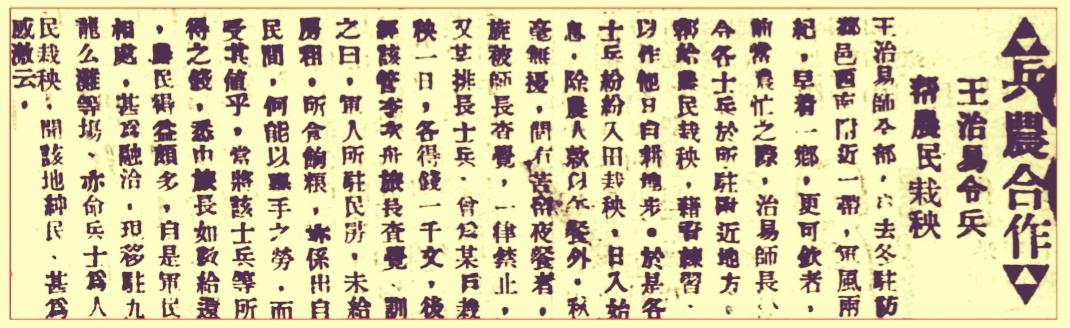 ▲兵農合作▼
王治易令兵
幫農民栽秧
王治易師本部，自去冬駐防
鄰邑西南附近一帶，軍風兩
紀，早著一鄉，更可欽者，
前當農忙之際，治易師長
令各士兵於所駐附近地方
鄉給農民栽秧，藉習練習
以作他日自耕地步。於是各
士兵紛紛入田栽秧，日入始
息，除農人款以午餐外，秋
毫無擾，間有苦留夜餐者，
旋被師長查覺，一律禁止，
又某排長士兵、曾爲某戶栽
秧一日，各得錢一千文，後
經該管李次舟旅長查覺、訓
之曰，軍人所駐民房，未給
房租，所食餉糧，亦係出自
民間，何能以舉手之勞，而
受其值乎，當將該士兵等所
得之錢，悉由旅長如數給還
，農民獲益頗多，自是軍民
相處，甚爲融洽，現移駐九
龍么灘等場、亦命兵士爲人
民栽秧、聞該地紳民、甚爲
感激云，